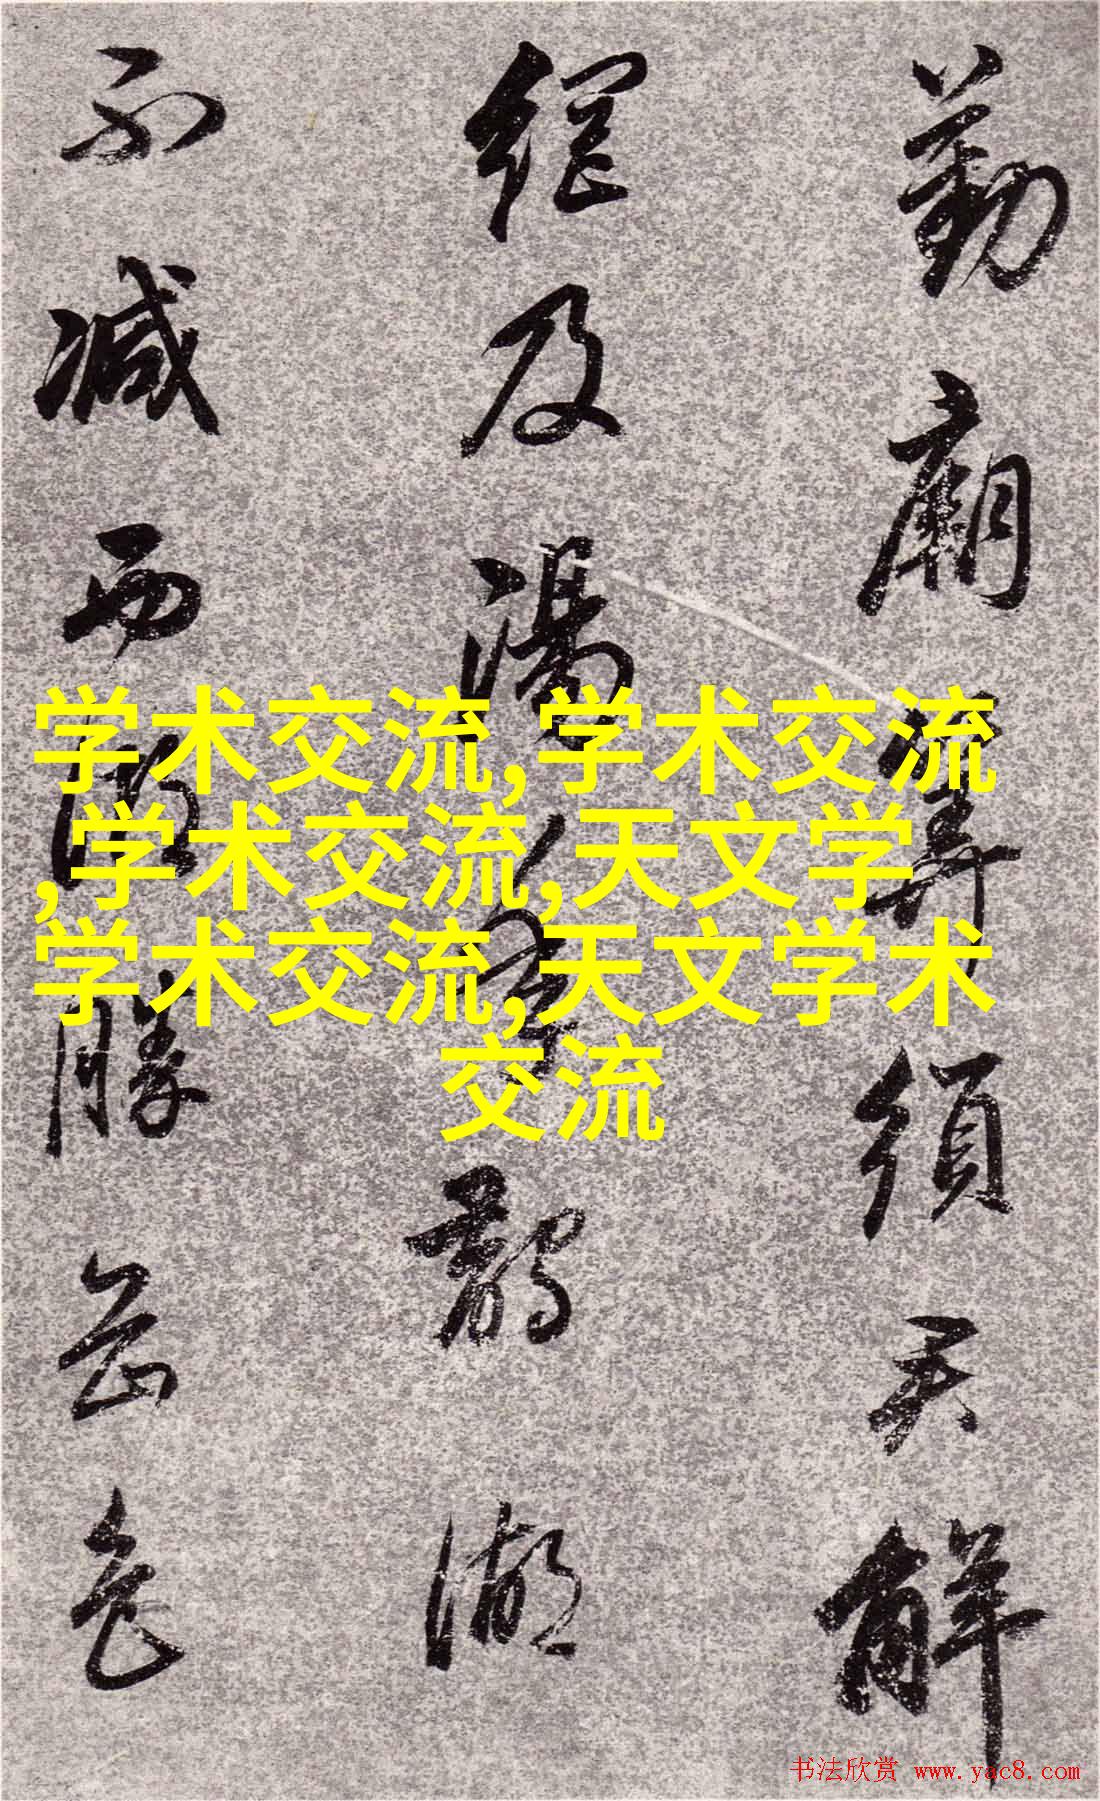 勤廟算須君解
網及湯年鵲湖
不減西湖勝岳色
学术交流,学术交流
,学术交流,天文学
学术交流,天文学术
交流
书法欣赏 www.yac8.com